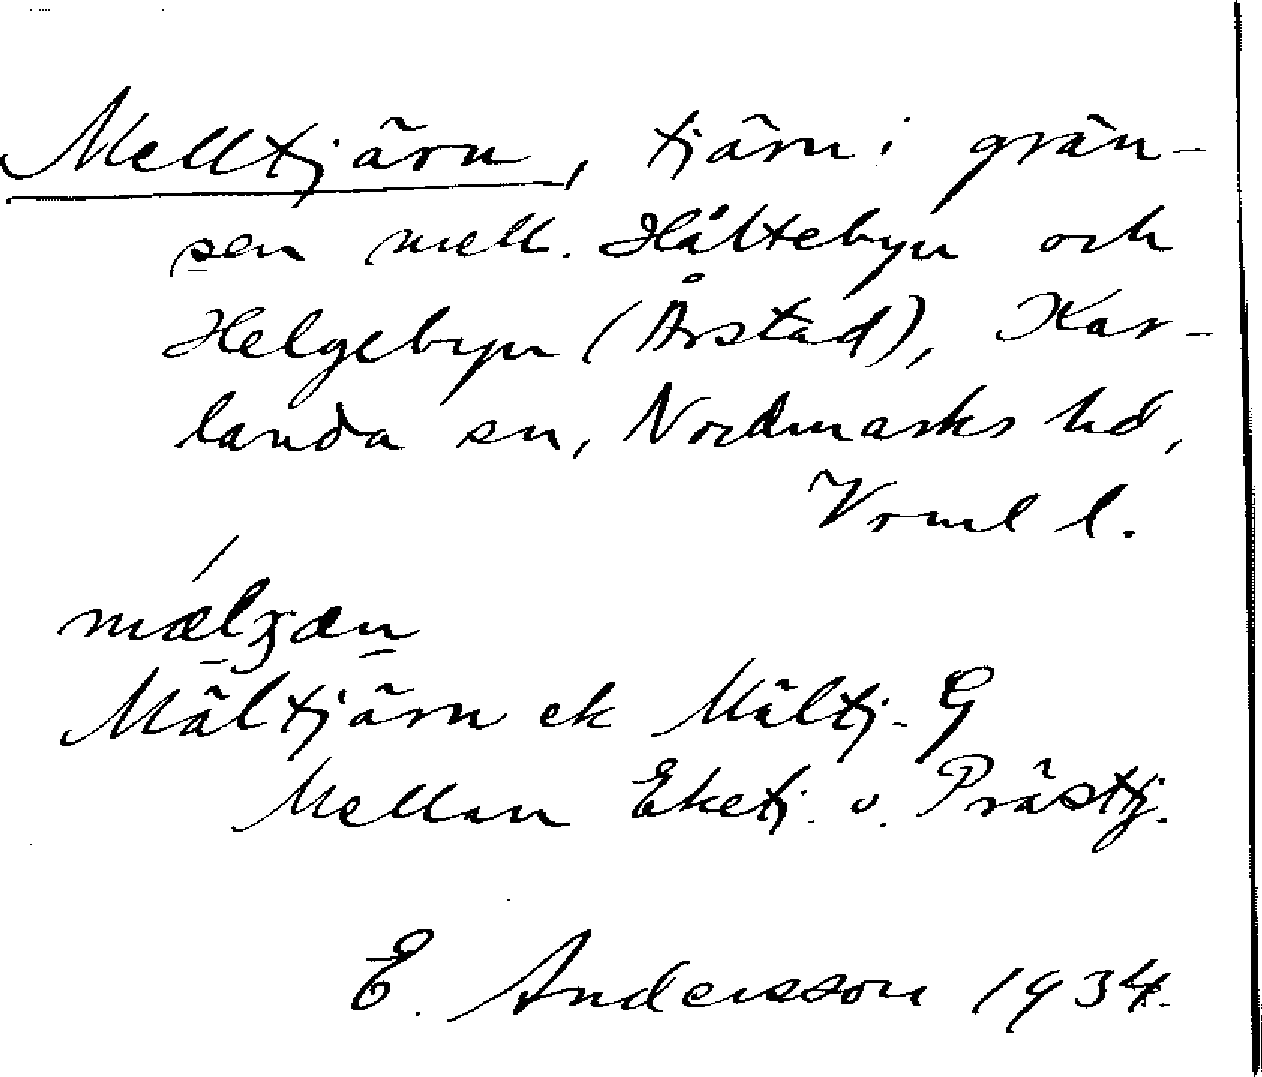 Melltjärn, tjärn i grän-
sen mell. Hältebyn och
Helgebyn (Årstad), Kar-
landa sn, Nordmarks hd,
Vrml l.
mælʒæn
Mältjärn ek Mältj. G
Mellan Eketj. o. Prästtj.
E. Andersson 1934.